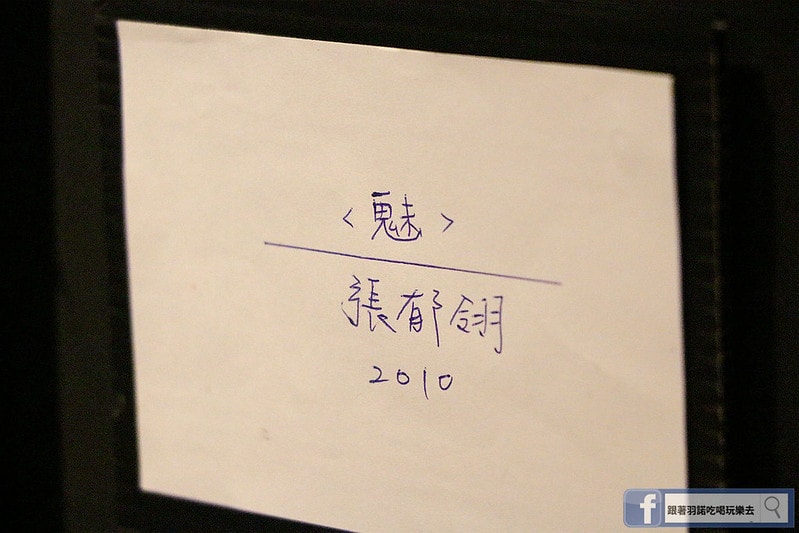 <魅>
張郁翎
2010
跟著羽諾吃喝玩樂去